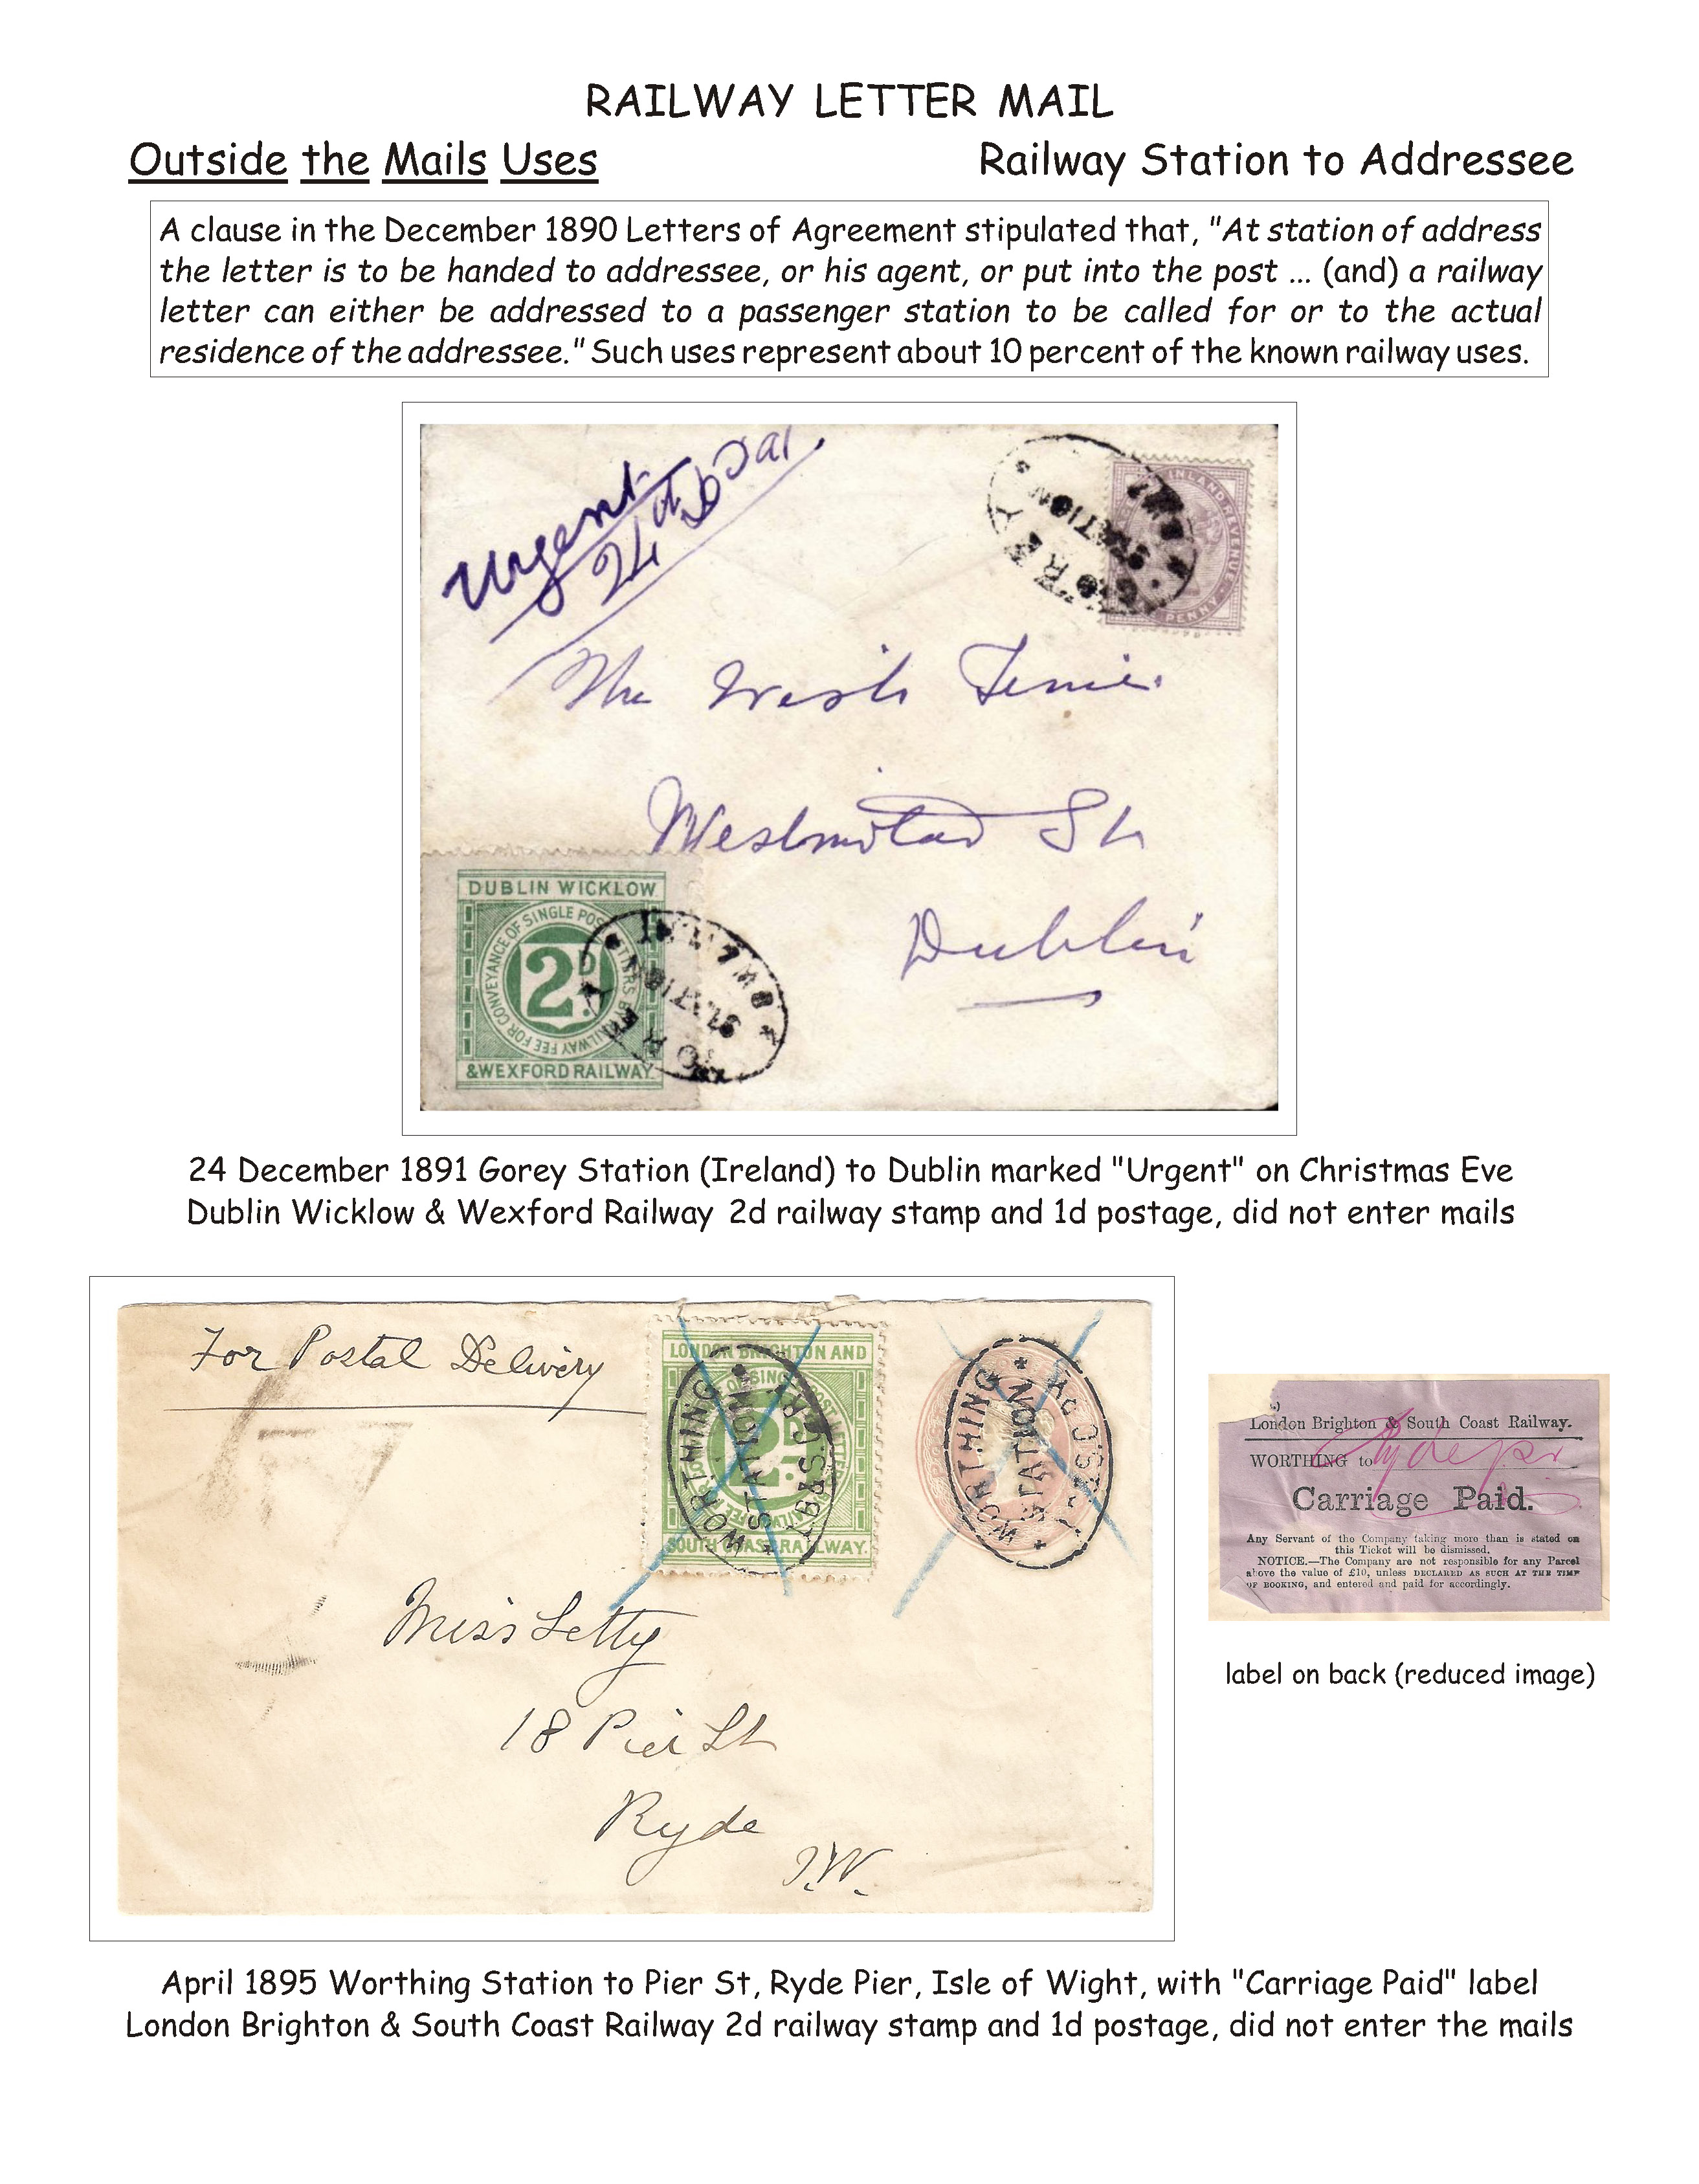 RAILWAY LETTER MAIL
Outside the Mails Uses
Railway Station to Addressee
A clause in the December 1890 Letters of Agreement stipulated that, "At station of address
the letter is to be handed to addressee, or his agent, or put into the post ... (and) a railway
letter can either be addressed to a passenger station to be called for or to the actual
residence of the addressee." Such uses represent about 10 percent of the known railway uses.
Urgent
24th
INLAND REVENUE
PENNY
GOREY
STATION
Westmoreland St
Dublin
DUBLIN WICKLOW
FEE FOR CONVEYANCE OF SINGLE POST LETTERS BY RAILWAY
2D
& WEXFORD RAILWAY.
STATION
24 December 1891 Gorey Station (Ireland) to Dublin marked "Urgent" on Christmas Eve
Dublin Wicklow & Wexford Railway 2d railway stamp and 1d postage, did not enter mails
For Postal Delivery
LONDON BRIGHTON AND
2D
SOUTH COAST RAILWAY.
WORTHING
STATION
L B & S C RY
WORTHING
STATION
Miss Letty
18 Pier St
Ryde
I.W.
London Brighton & South Coast Railway.
WORTHING to Ryde pr
Carriage Paid.
Any Servant of the Company taking more than is stated on
this Ticket will be dismissed.
NOTICE.—The Company are not responsible for any Parcel
above the value of £10, unless DECLARED AS SUCH AT THE TIME
OF BOOKING, and entered and paid for accordingly.
label on back (reduced image)
April 1895 Worthing Station to Pier St, Ryde Pier, Isle of Wight, with "Carriage Paid" label
London Brighton & South Coast Railway 2d railway stamp and 1d postage, did not enter the mails